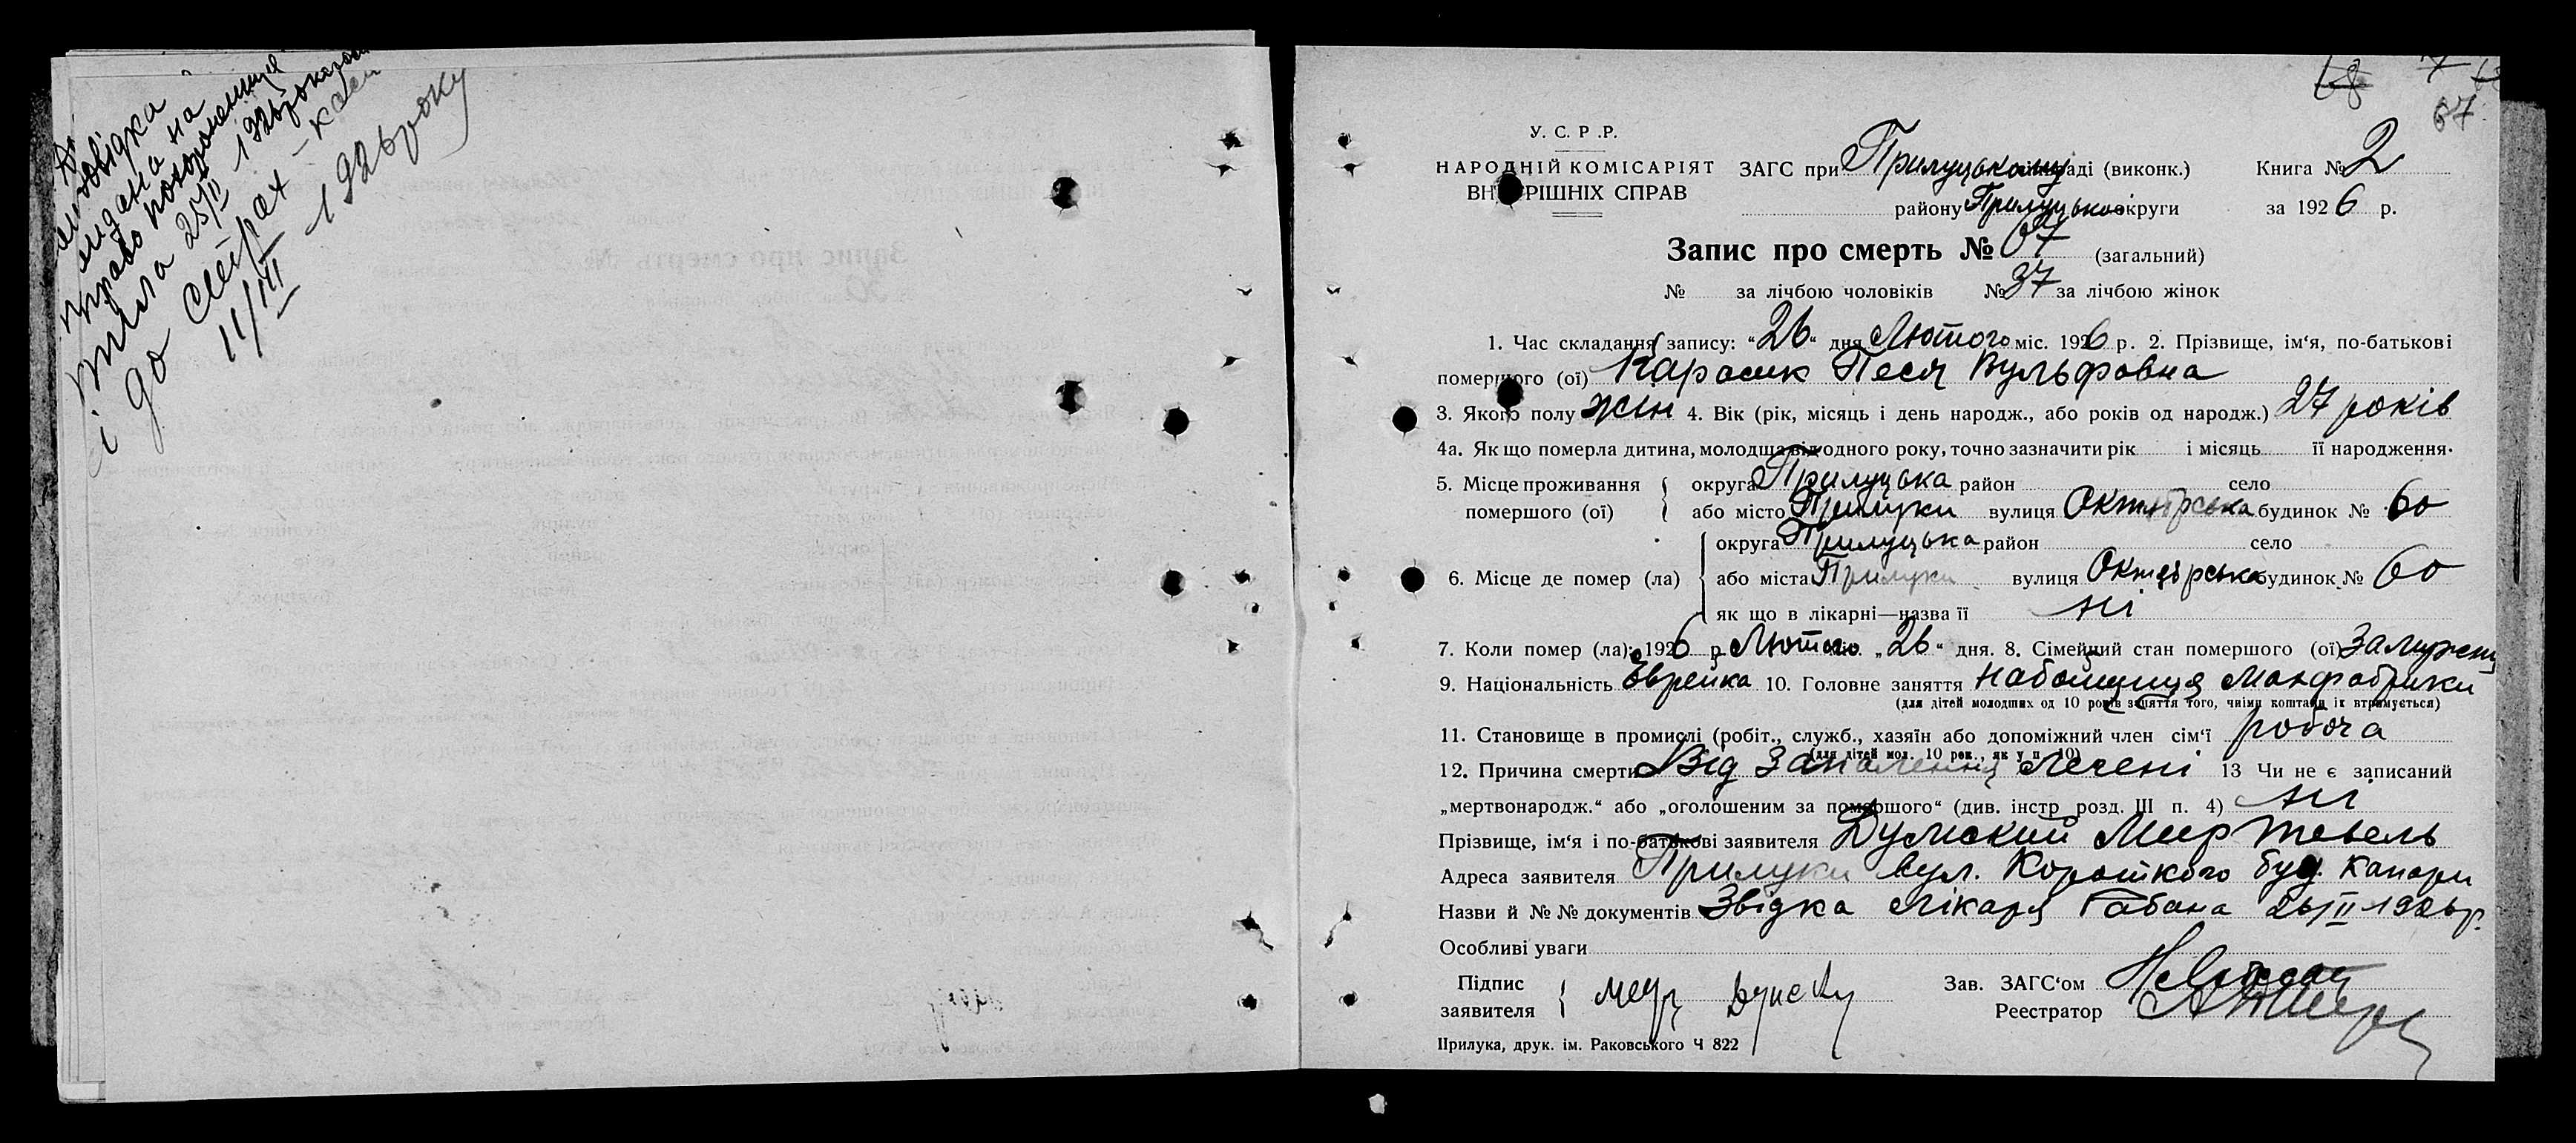 видана на
право похоронення
тіла 25/II 1926 року
11/III 1926 року
67
У. С. Р. Р.
НАРОДНІЙ КОМІСАРІЯТ
ВНУТРІШНІХ СПРАВ
ЗАГС при Прилуцькому раді (виконк.)
району Прилуцької округи
Книга № 2
за 1926 р.
Запис про смерть № 67 (загальний)
№ за лічбою чоловіків № 37 за лічбою жінок
1. Час складання запису: "26" дня Лютого міс. 1926 р. 2. Прізвище, ім'я, по-батькові
помершого (ої) Карасик Песя Вульфовна
3. Якого полу жін 4. Вік (рік, місяць і день народж., або років од народж.) 27 років
4а. Як що померла дитина, молодша від одного року, точно зазначити рік і місяць її народження.
5. Місце проживання помершого (ої) округа Прилуцька район село
або місто Прилуки вулиця Октябрська будинок № 60
6. Місце де помер (ла) округа Прилуцька район село
або міста Прилуки вулиця Октябрська будинок № 60
як що в лікарні—назва її ні
7. Коли помер (ла): 1926 р. Лютого міс. „26" дня. 8. Сімейний стан помершого (ої) Замужем
9. Національність Єврейка 10. Головне заняття Набойщиця Махфабрики
(для дітей молодших од 10 років заняття того, чиїми коштами їх втримується)
11. Становище в промислі (робіт., служб., хазяїн або допоміжний член сім'ї робоча
(для дітей мол. 10 рок., як у п. 10)
12. Причина смерти Від Запалення Лечені 13 Чи не є записаний
„мертвонародж." або „оголошеним за помершого" (див. інстр розд. III п. 4) ні
Прізвище, ім'я і по-батькові заявителя Думский Меер Тевель
Адреса заявителя Прилуки вул. Короткого буд.
Назви й №№ документів Звідка лікаря Рабана 26/II 1926 р.
Особливі уваги
Підпис заявителя
Зав. ЗАГС'ом
Реестратор
Прилука, друк. ім. Раковського Ч 822